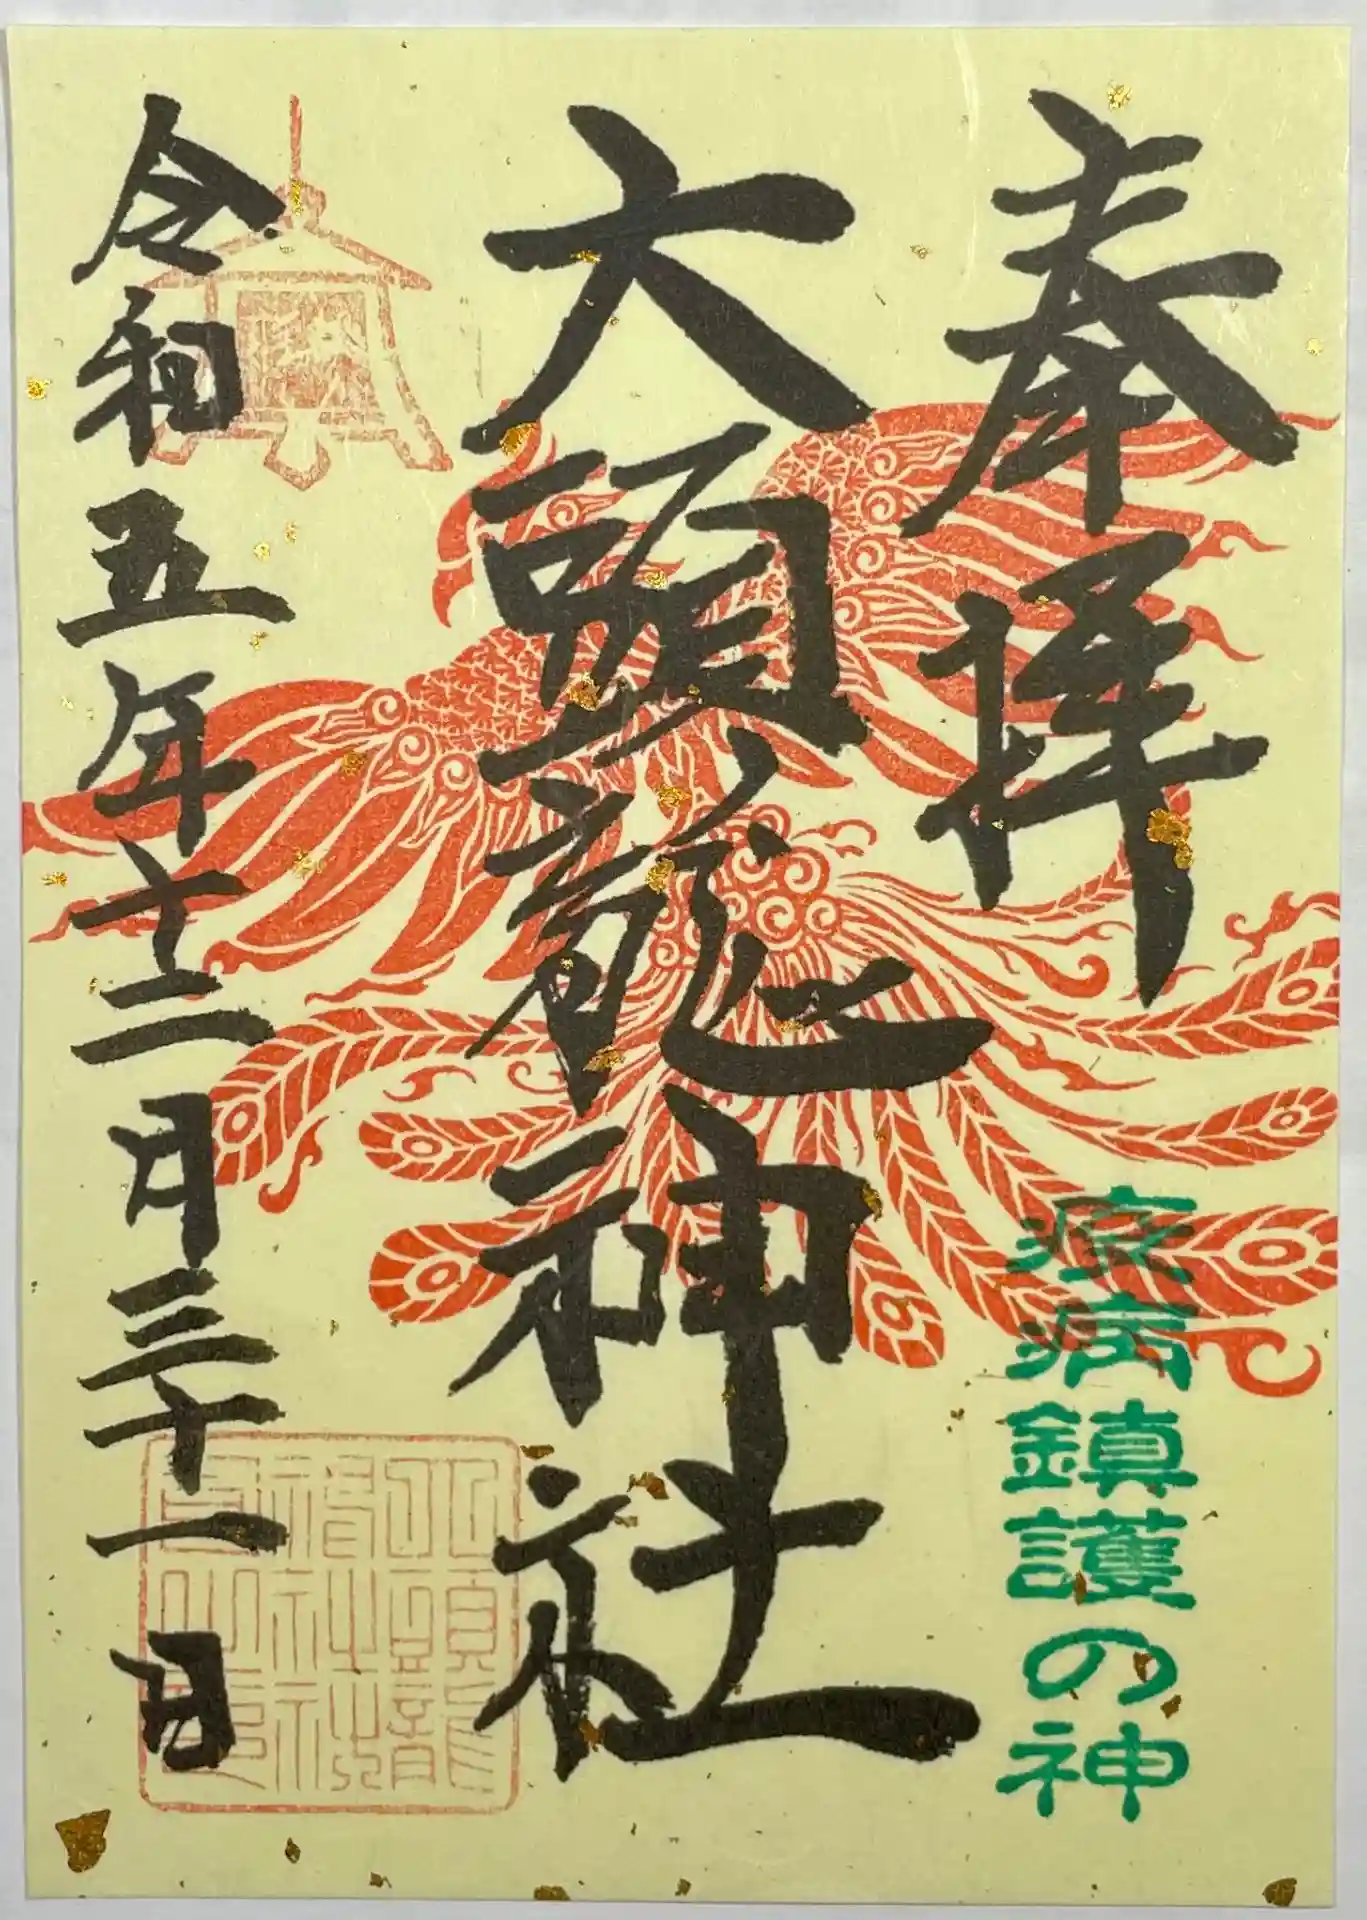 奉拝
疫病鎮護の神
六頭龍神社
令和五年十二月三十一日